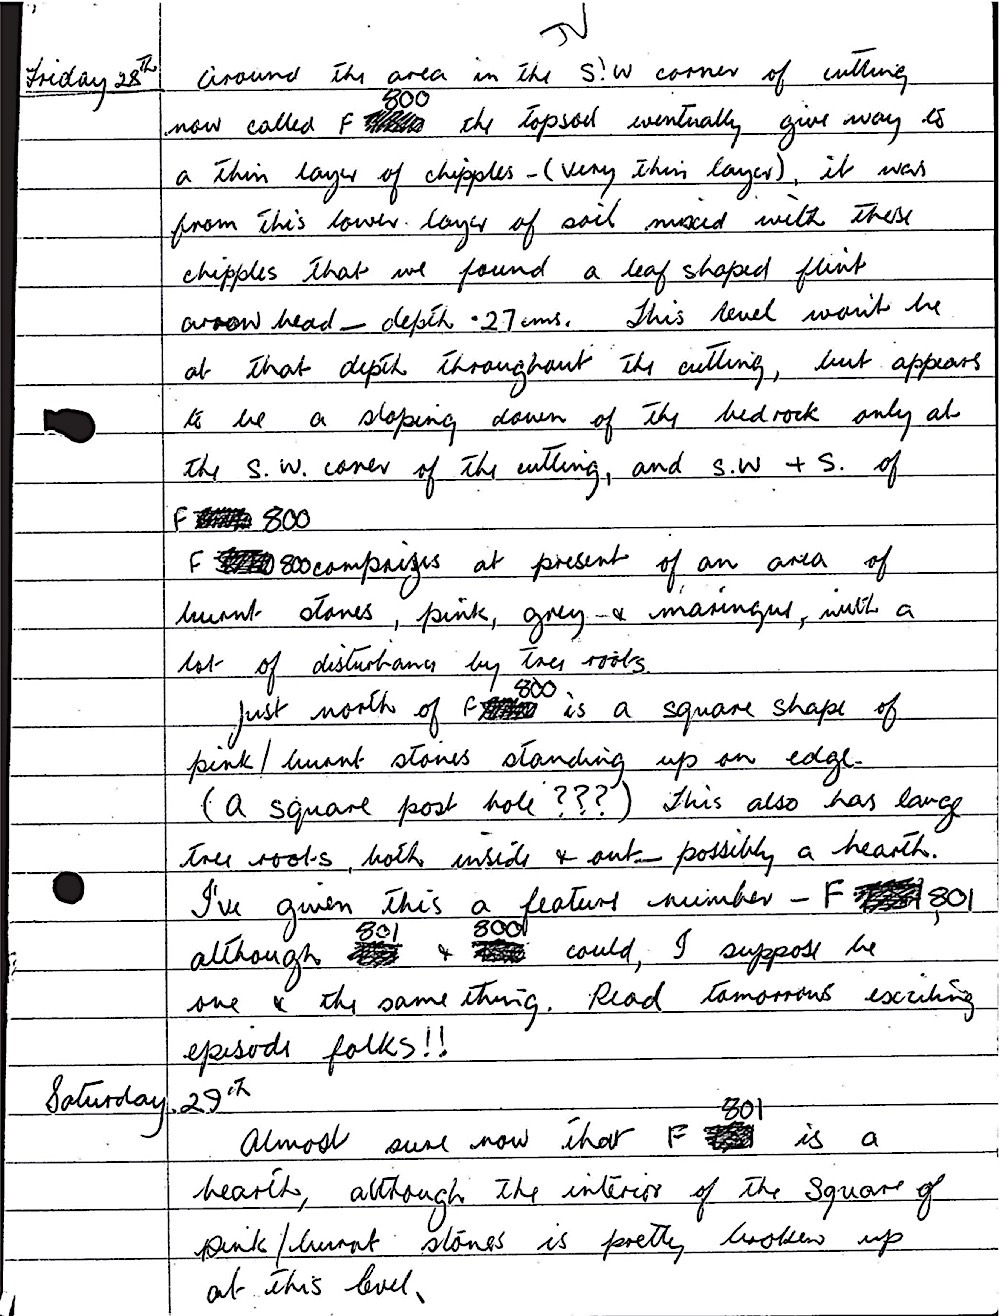 IV
Friday 28th around the area in the S.W corner of cutting
now called F 800 the topsoil eventually give way to
a thin layer of chipples - (very thin layer), it was
from this lower layer of soil mixed with these
chipples that we found a leaf shaped flint
arrow head - depth .27cms. This level won't be
at that depth throughout the cutting, but appears
to be a sloping down of the bedrock only at
the S.W. corner of the cutting, and S.W + S. of
F 800
F 800 comprizes at present of an area of
burnt stones, pink, grey & , with a
lot of disturbance by tree roots.
Just north of F 800 is a square shape of
pink/burnt stones standing up on edge.
(A square post hole ???) This also has large
tree roots, both inside & out - possibly a hearth.
I've given this a feature number - F 801
although 801 & 800 could, I suppose be
one & the same thing. Read tomorrows exciting
episode folks!!
Saturday 29th
Almost sure now that F 801 is a
hearth, although the interior of the square of
pink/burnt stones is pretty broken up
at this level.